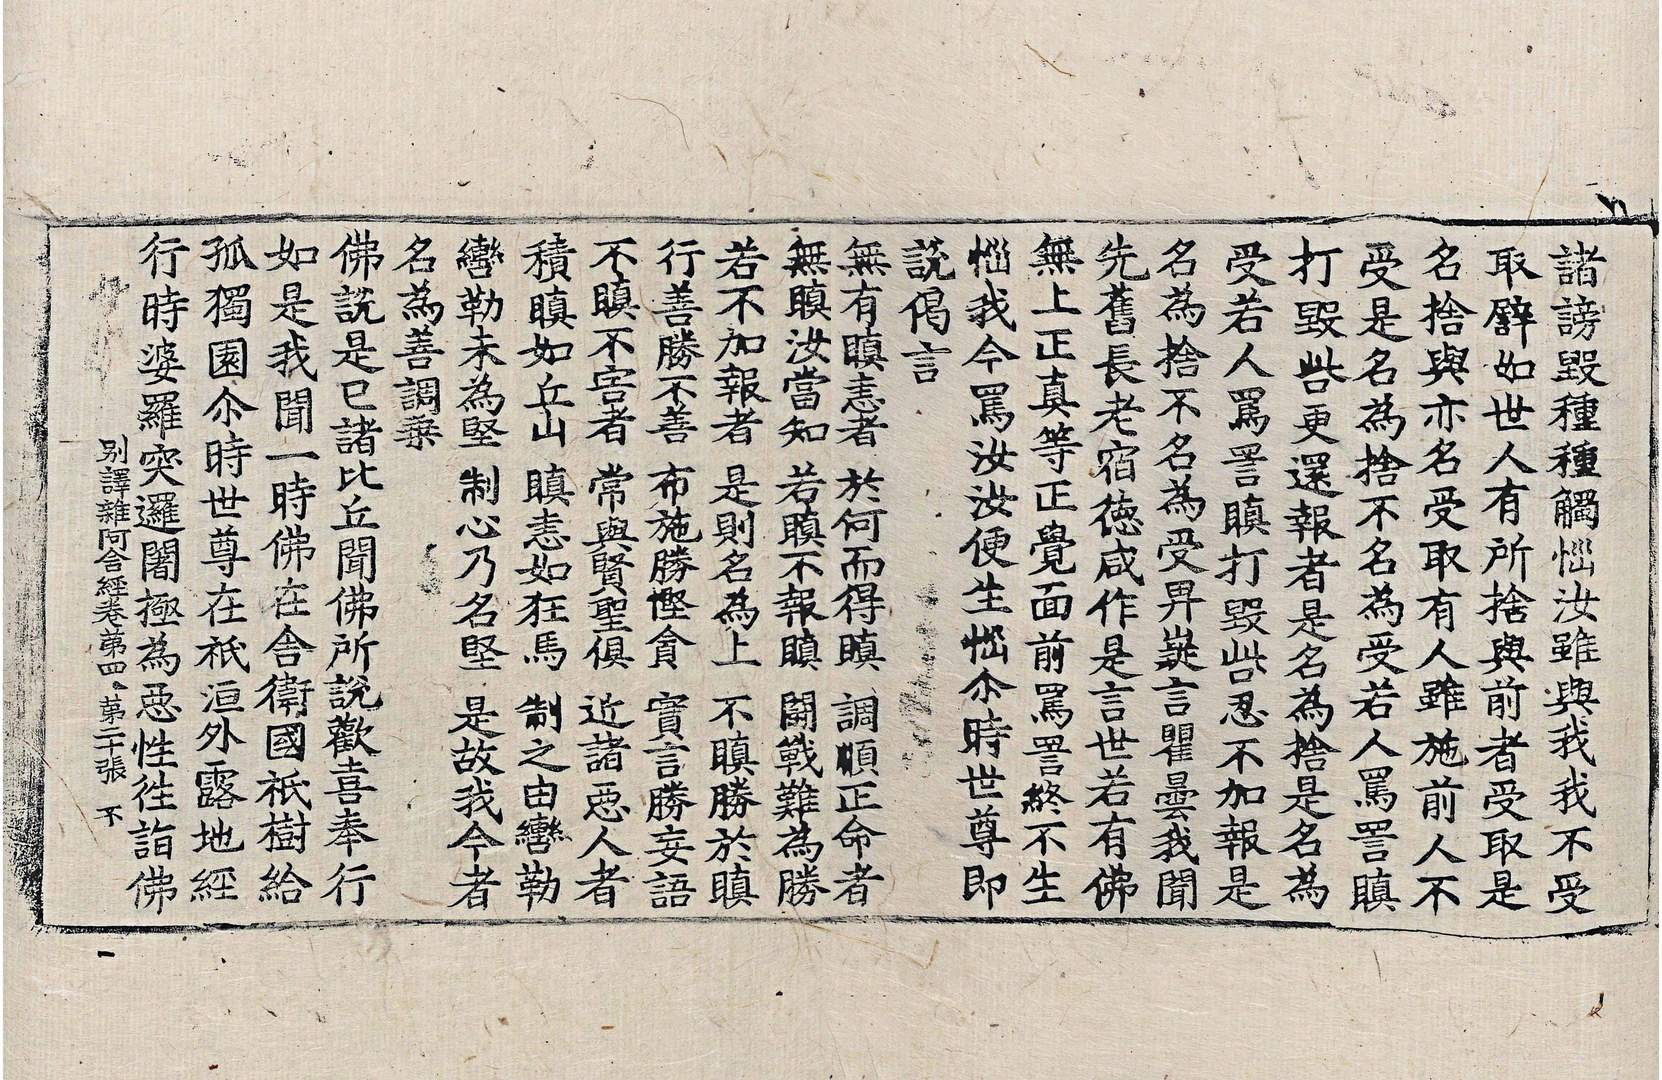 諸謗毀種種觸惱汝雖與我我不受
取譬如世人有所捨與前者受取是
名捨與亦名受取有人雖施前人不
受是名為捨不名為受若人罵詈瞋
打毀呰更還報者是名為捨是名為
受若人罵詈瞋打毀呰忍不加報是
名為捨不名為受婆羅門言瞿曇我聞
先舊長老宿德咸作是言世若有佛
無上正真等正覺面前罵詈終不生
惱我今罵汝汝便生惱尒時世尊即
說偈言
無有瞋恚者 於何而得瞋 調順正命者
無瞋汝當知 若瞋不報瞋 鬪戰難為勝
若不加報者 是則名為上 不瞋勝於瞋
行善勝不善 布施勝慳貪 實言勝妄語
不瞋不害者 常與賢聖俱 近諸惡人者
積瞋如丘山 瞋恚如狂馬 制之由轡勒
轡勒未為堅 制心乃名堅 是故我今者
名為善調乘
佛說是已諸比丘聞佛所說歡喜奉行
如是我聞一時佛在舍衛國祇樹給
孤獨園尒時世尊在祇洹外露地經
行時婆羅突邏闍極為惡性往詣佛
別譯雜阿含經卷第四 第二十張 不